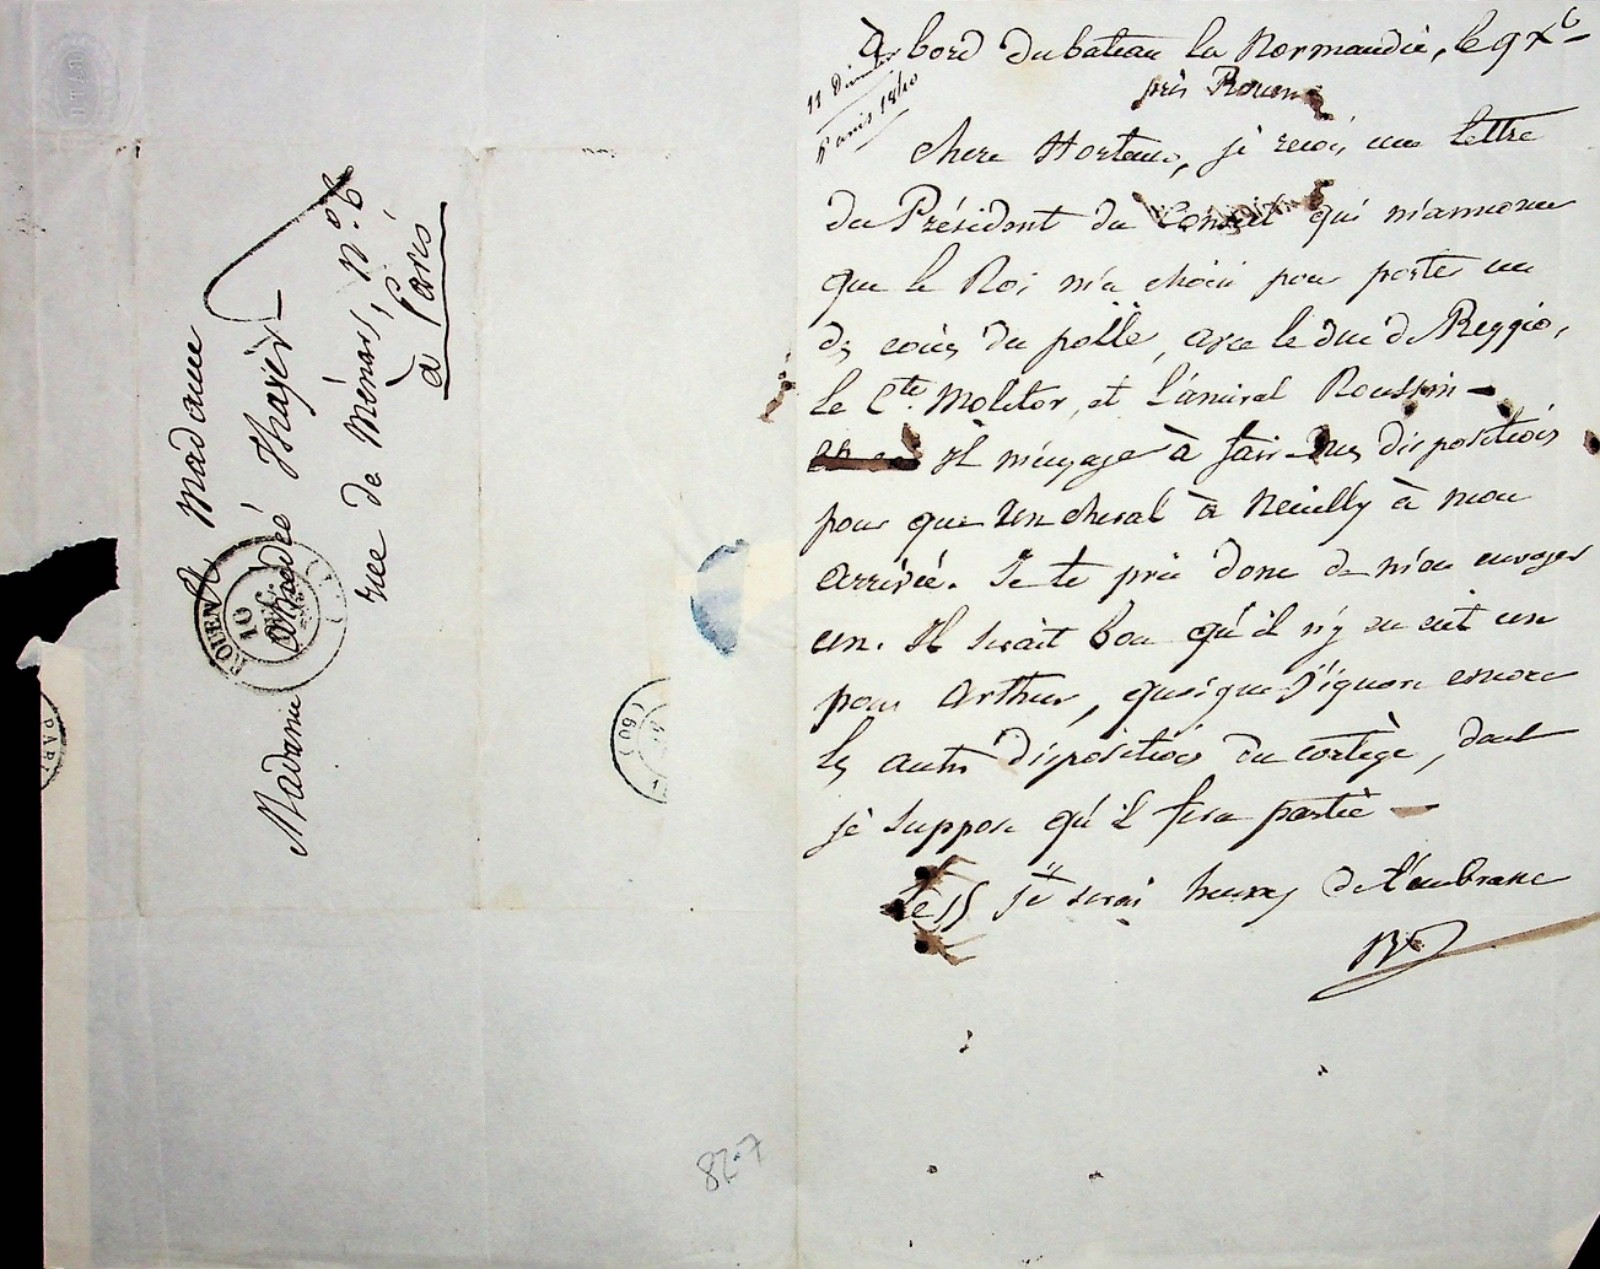 À bord du bateau la Normandie, le 9 Xb
près Rouen
11 Décembre
Paris 1840
Chere Hortense, je recois une lettre
du Président du Conseil qui m'annonce
que le Roi m'a choisi pour porter un
des coins du poële, avec le duc de Reggio,
le Cte Molitor, et l'amiral Roussin -
Il m'engage à faire mes dispositions
pour que un cheval à Neuilly à mon
arrivée. Je te prie donc de m'en envoyer
un. Il serait bon qu'il n'y en eut un
pour Arthur, quoique j'ignore encore
les autres dispositions du cortège, dont
je suppose qu'il fera partie -
le 15 je serai heureux de t'embrasser
A Madame
Madame Amédée Thayer
rue de Ménars, N.º 6
à Paris
ROUEN
10
DEC.
(60)
PARI
82-7